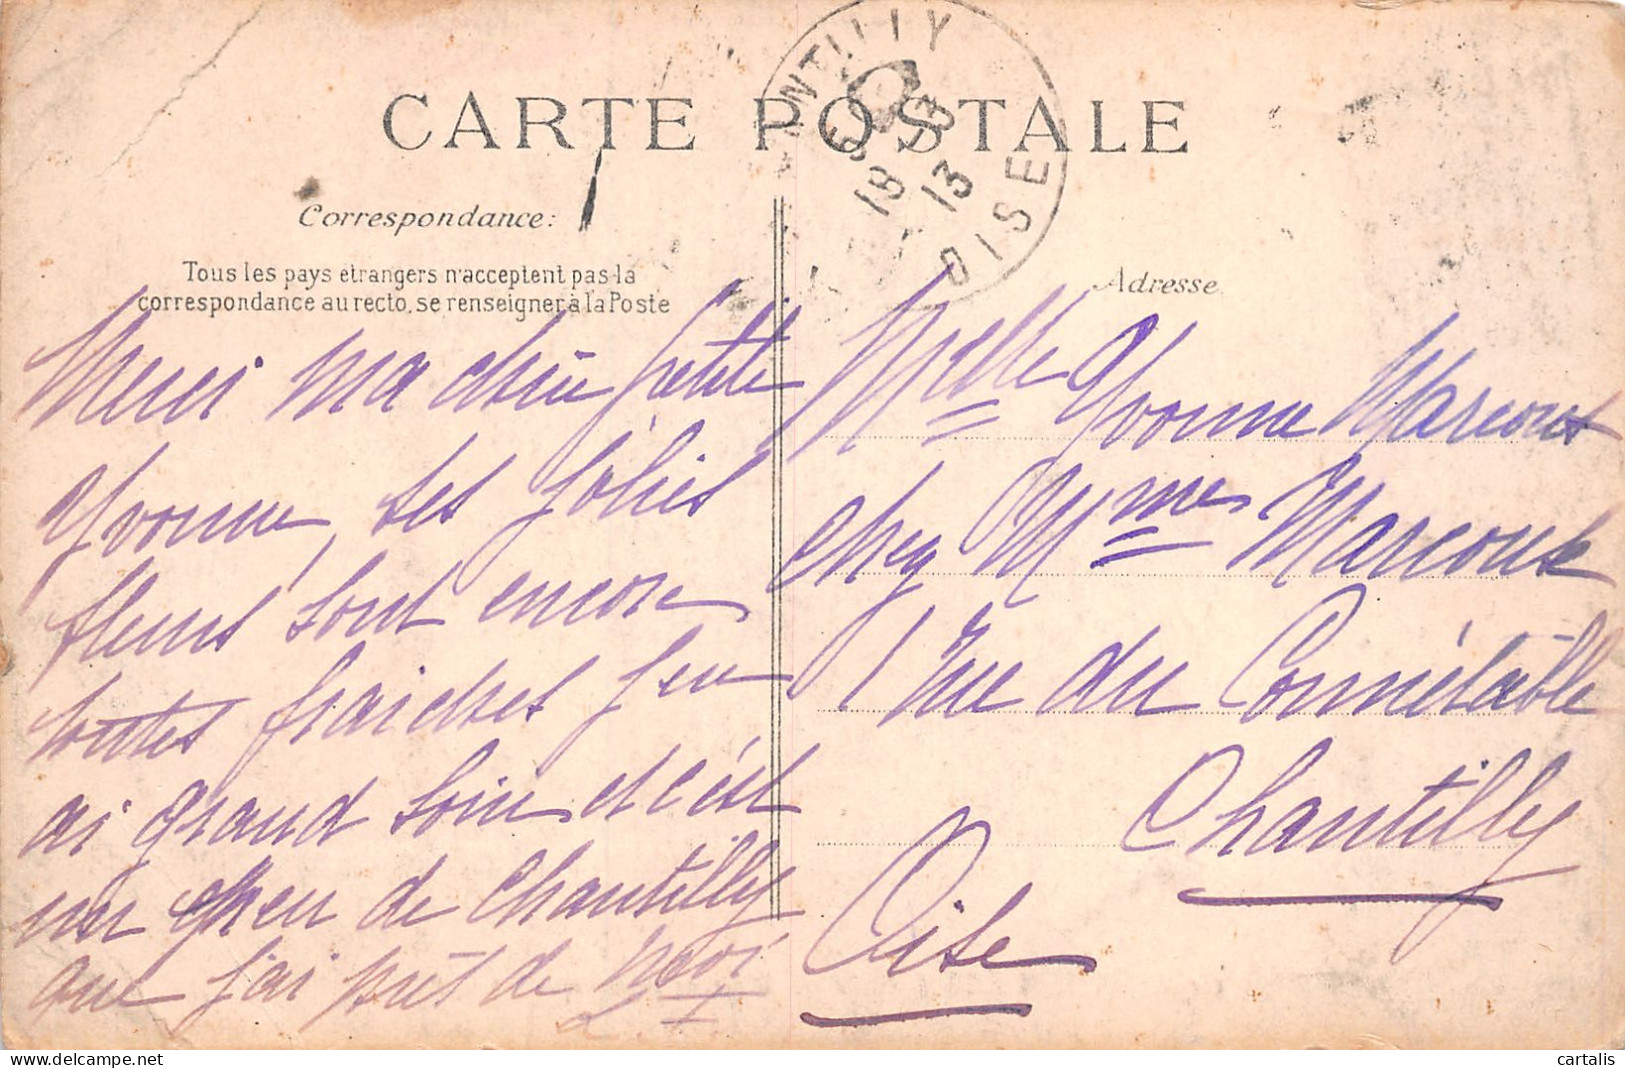 CARTE POSTALE
CHANTILLY
OISE
18
13
Correspondance:
Tous les pays etrangers n'acceptent pas la
correspondance au recto, se renseigner à la Poste
Adresse
Merci ma chère petite
Yvonne, tes jolies
fleurs sont encore
toutes fraiches j'en
ai grand soin et c'est
un peu de Chantilly
que j'ai près de moi
Melle Yvonne Marcoux
chez Mme Marcoux
1 rue du Connétable
Chantilly
Oise
cartalis